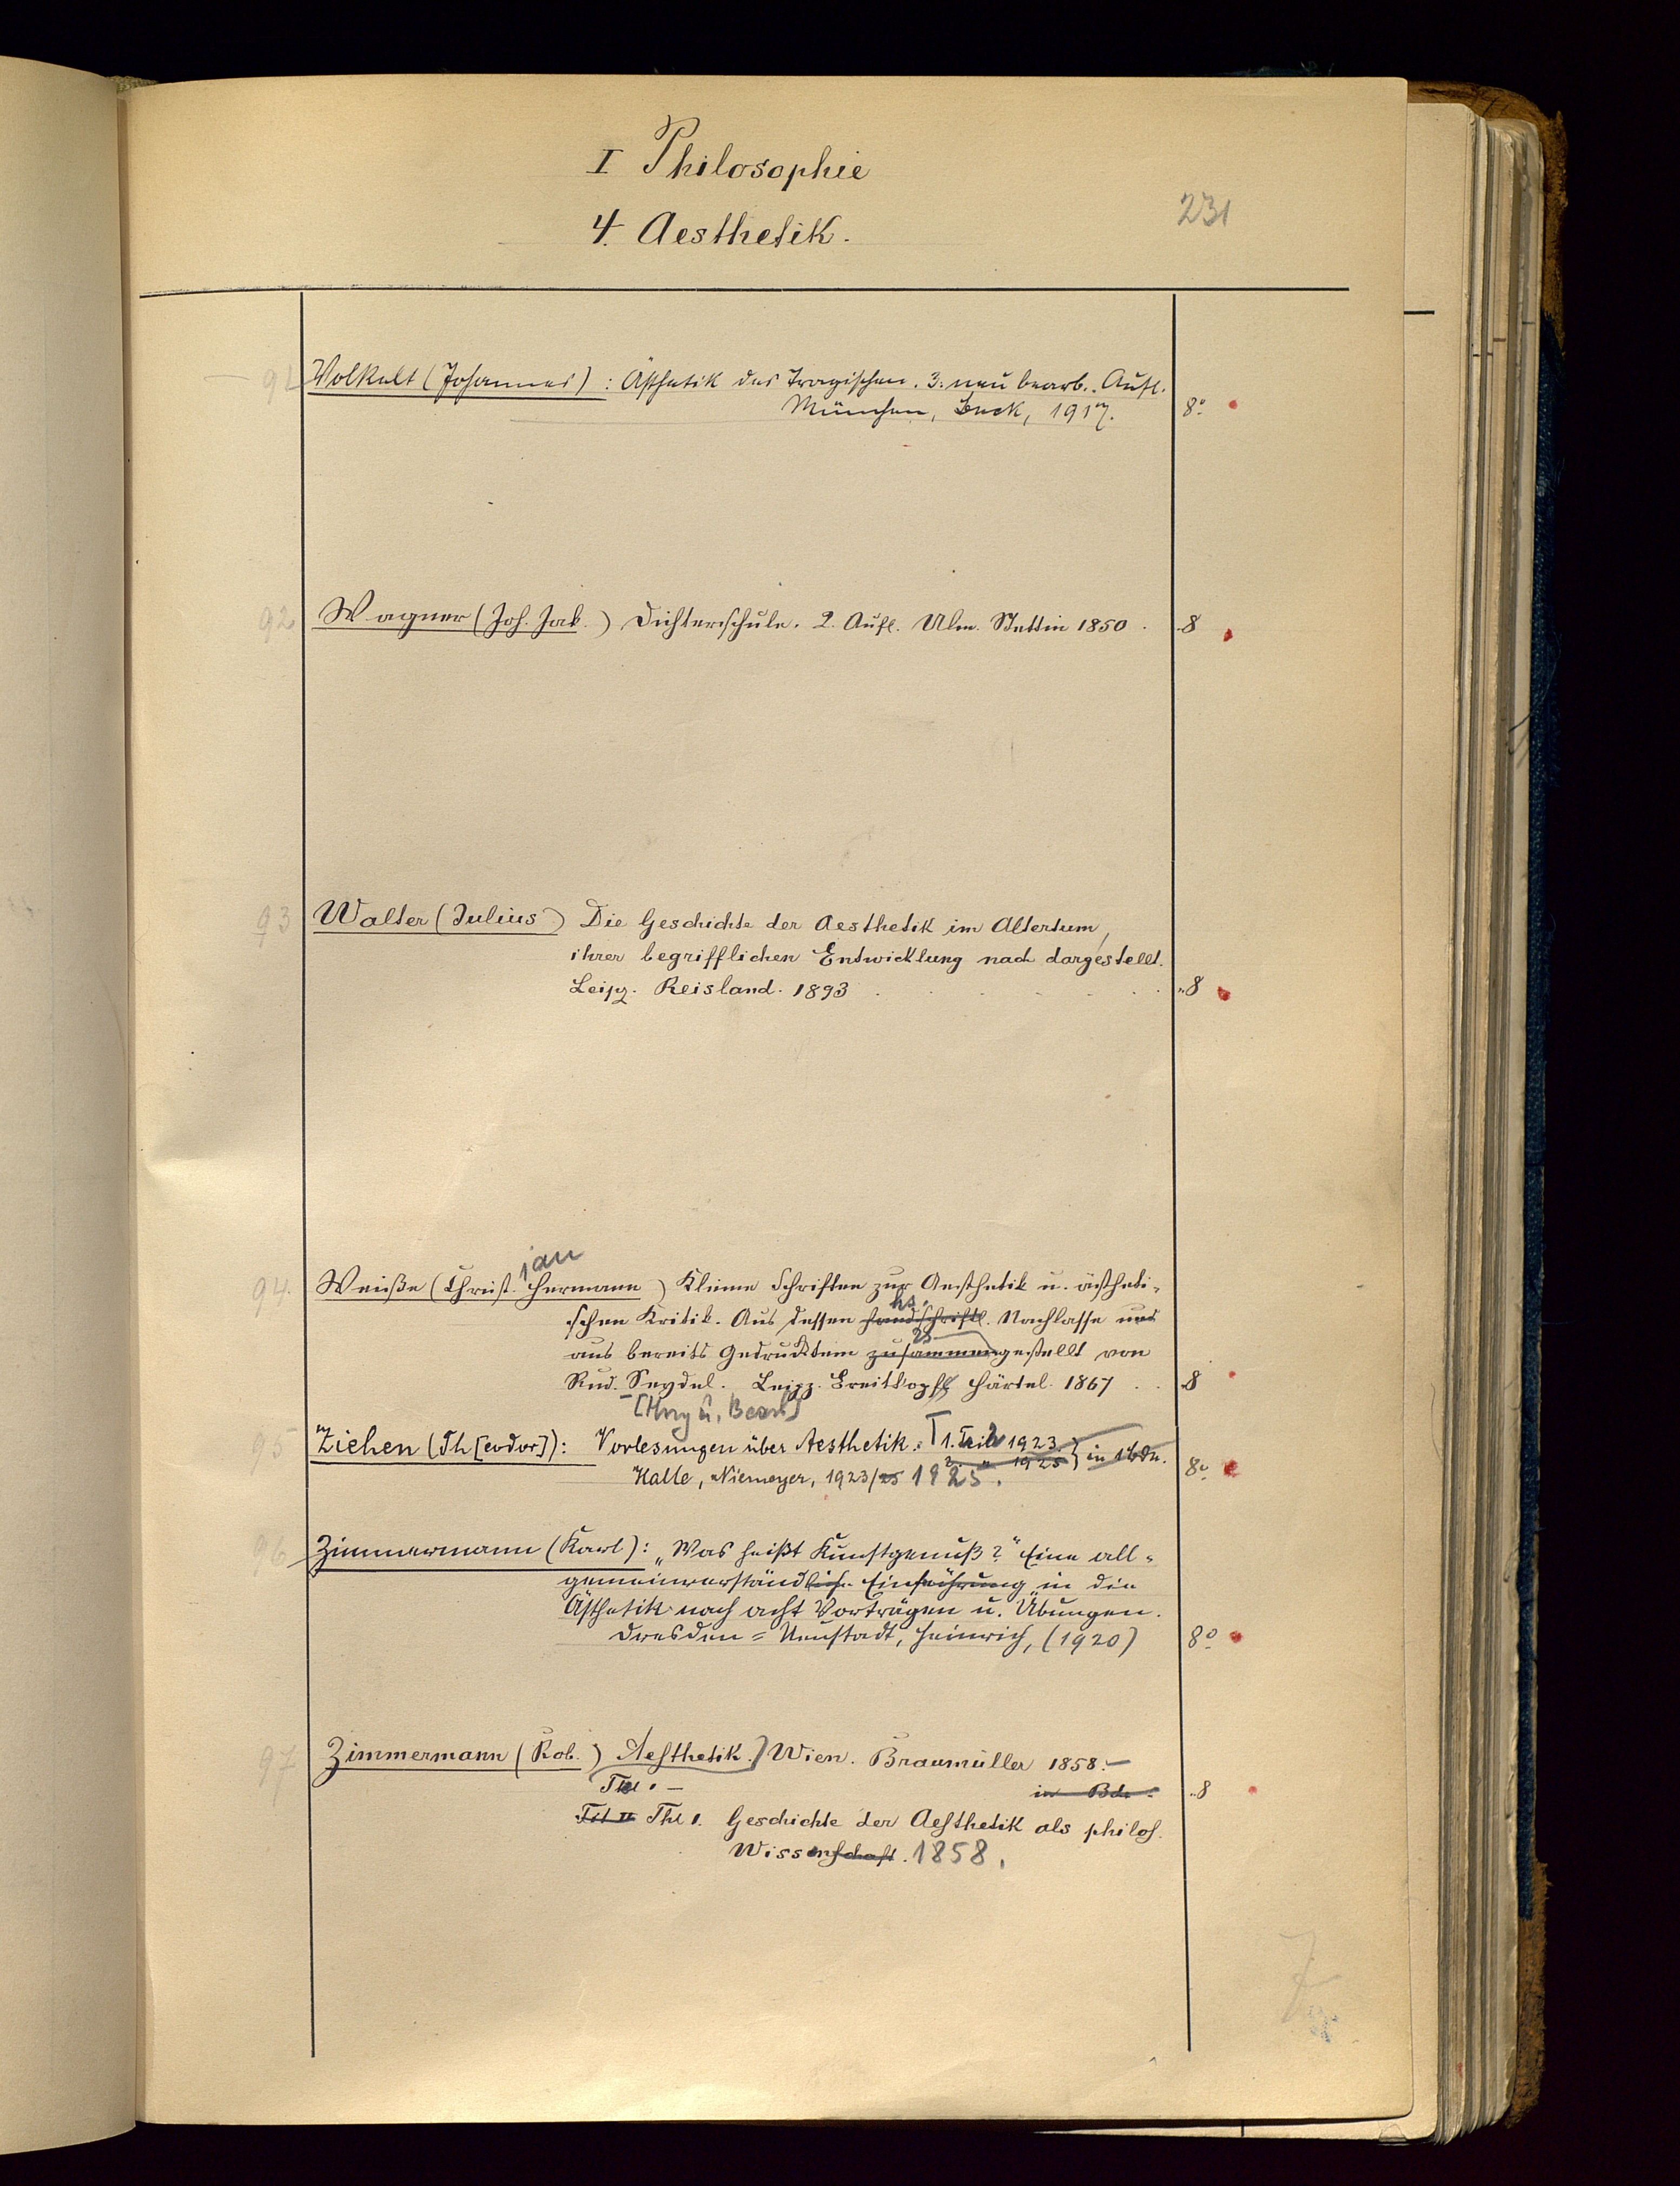 I Philosophie
231
4. Aesthetik.
91 Volkelt (Johannes) : Ästhetik des Tragischen. 3. neu bearb. Aufl.
München, Beck, 1917. 8°
92 Wagner (Joh. Jak.) Dichterschule. 2. Aufl. Ulm. Stettin 1850. 8
93 Walter (Julius) Die Geschichte der Aesthetik im Altertum,
ihrer begrifflichen Entwicklung nach dargestellt.
Leipz. Reisland. 1893 8
jan
94. Weiße (Christ. Hermann) Kleine Schriften zur Aesthetik u. ästheti-
hs.
schen Kritik. Aus dessen handschriftl. Nachlasse und
zs
aus bereits Gedrucktem zusammengestellt von
Rud. Seydel. Leipz. Breitkopf Härtel. 1867 . . 8
[Hrsg u. Bearb]
95 Ziehen (Th[eodor]): Vorlesungen über Aesthetik. T 1. Teil 1923.
2. " 1925 } in 1 Bdn.
Halle, Niemeyer, 1923/25 1925. 8°
96 Zimmermann (Karl): „Was heißt Kunstgenuß?" Eine all-
gemeinverständlich. Einführung in die
Ästhetik nach acht Vorträgen u. Übungen.
Dresden-Neustadt, Heinrich, (1920) 8°
97 Zimmermann (Rob.) Aesthetik. Wien. Braumüller 1858.-
Thl. - in Bde. 8
Thl II Thl 1. Geschichte der Aesthetik als philos.
Wissenschaft. 1858.
7